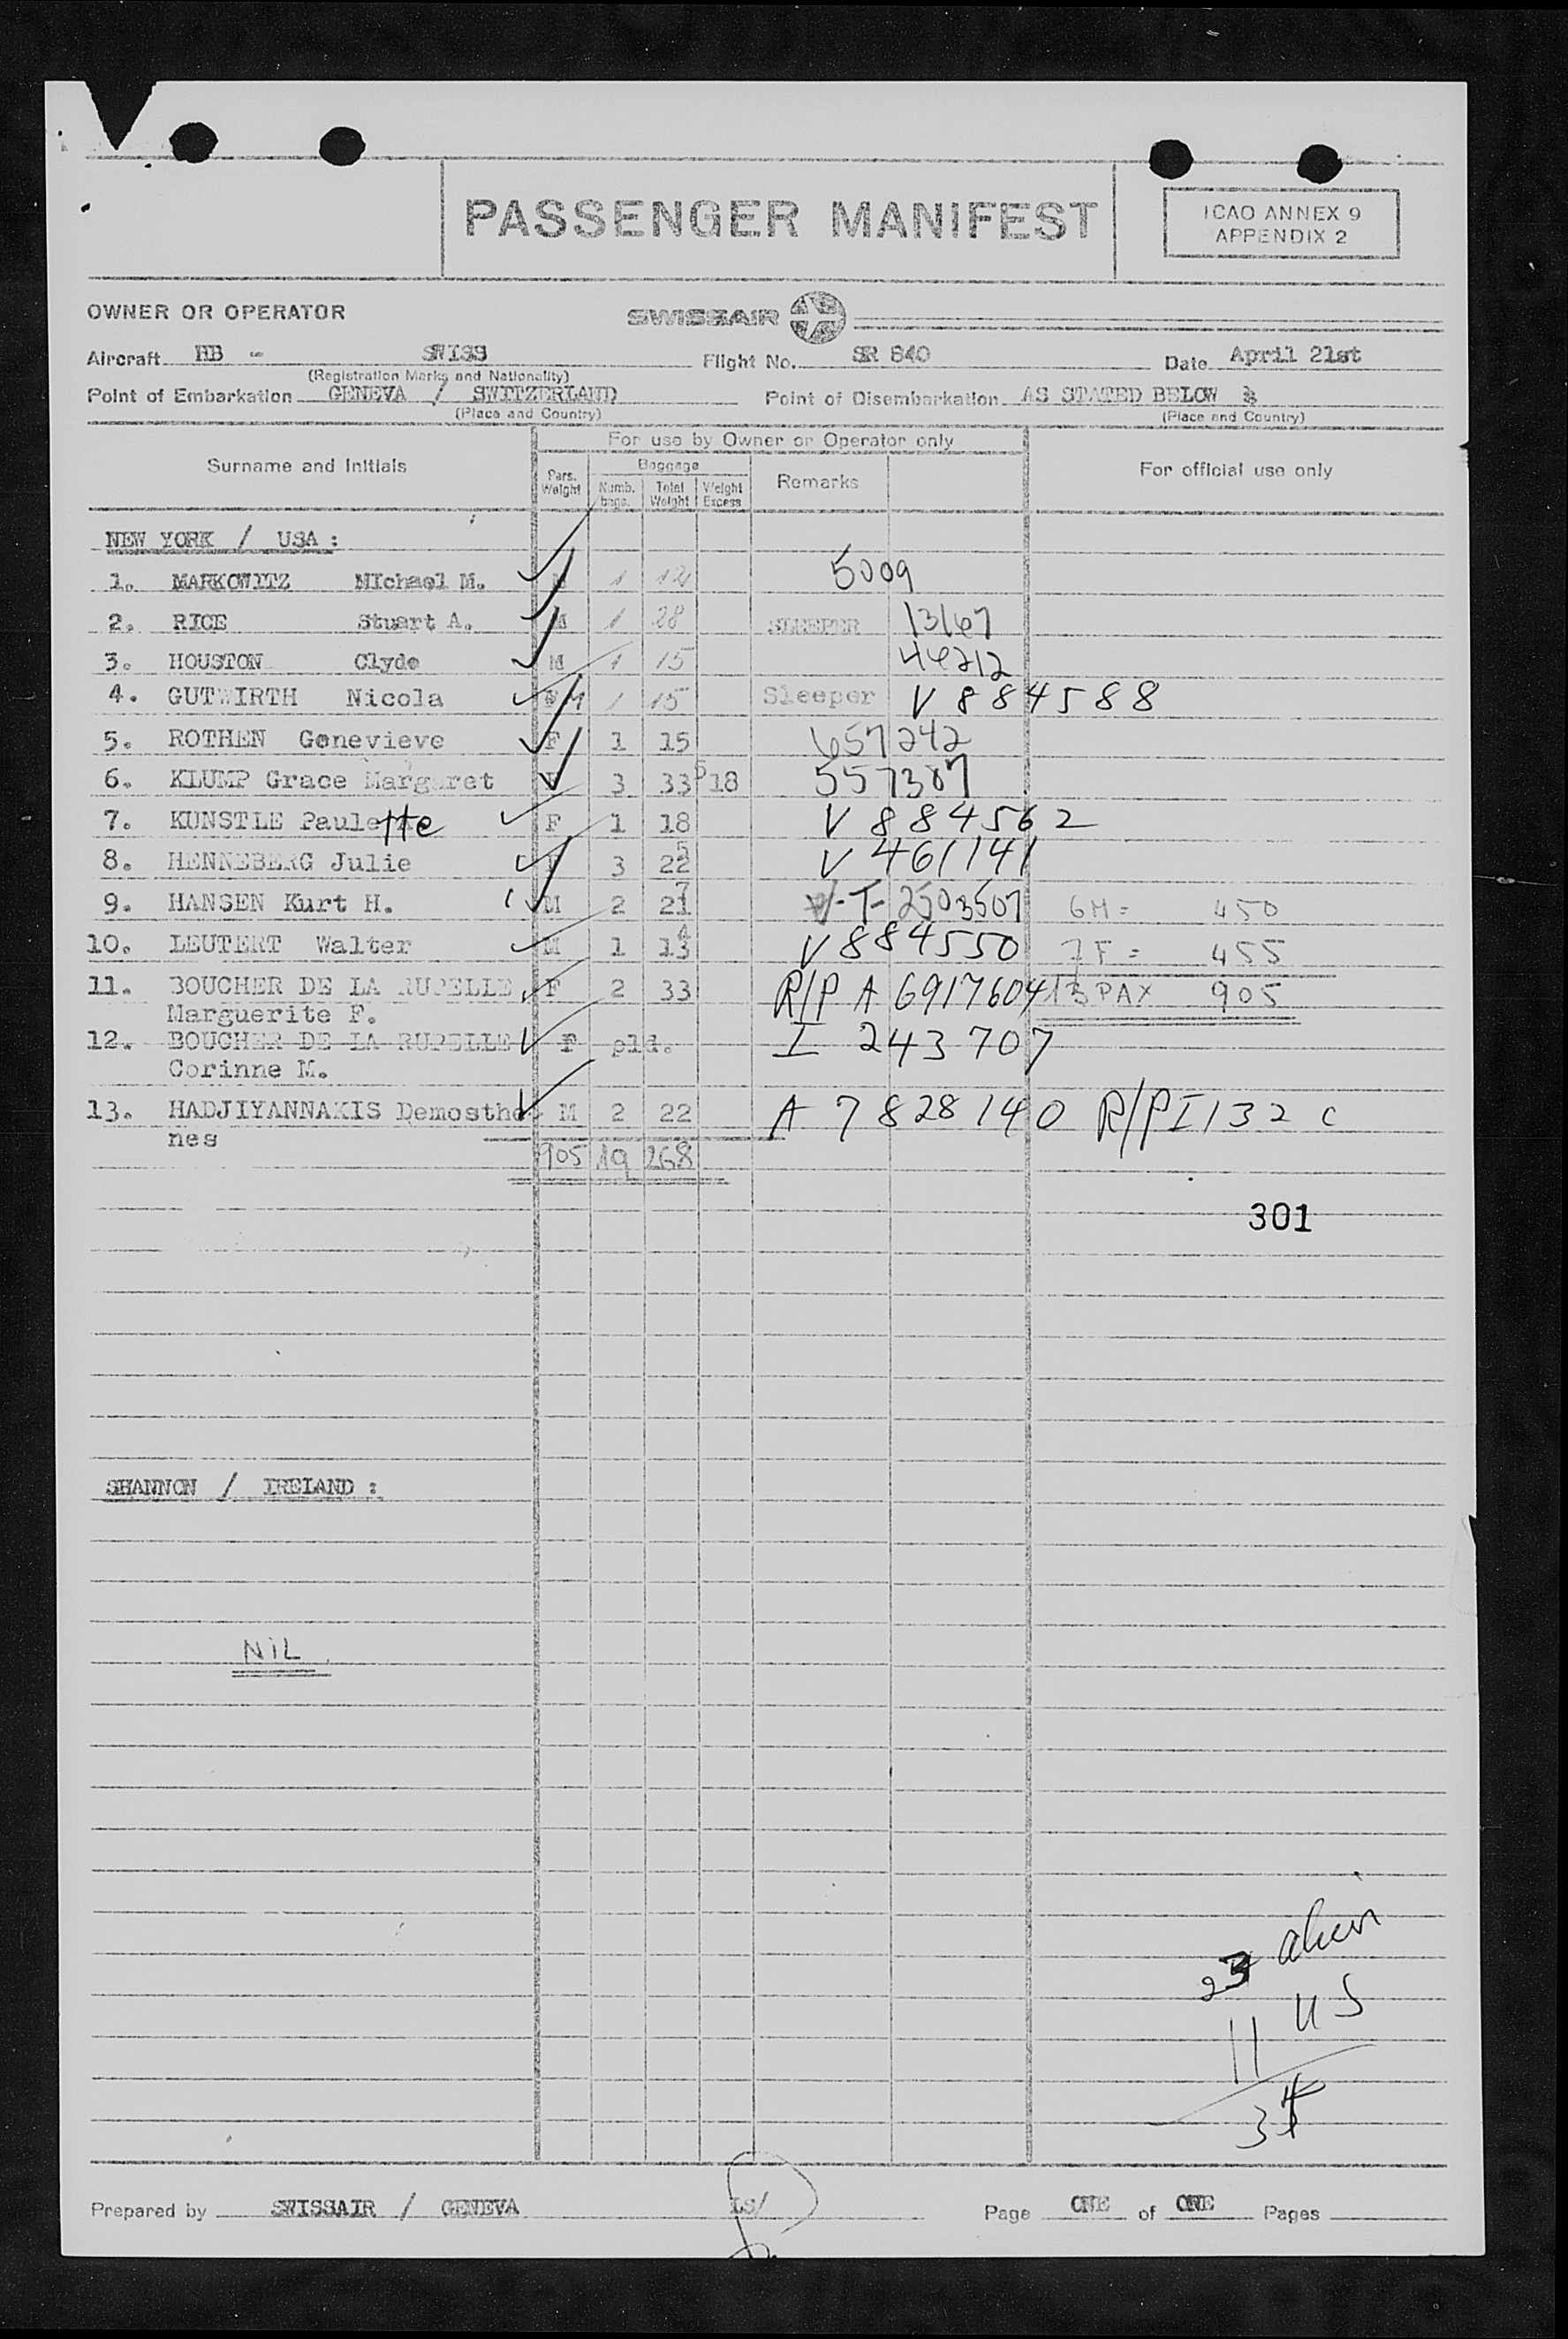 PASSENGER MANIFEST
ICAO ANNEX 9
APPENDIX 2
OWNER OR OPERATOR SWISSAIR
Aircraft HB - SWISS Flight No. SR 840 Date April 21st
(Registration Marks and Nationality)
Point of Embarkation GENEVA / SWITZERLAND Point of Disembarkation AS STATED BELOW
(Place and Country) (Place and Country)
For use by Owner or Operator only
Surname and Initials Pers. Weight Baggage Numb. bags. Total Weight Weight Excess Remarks For official use only
NEW YORK / USA :
1. MARKOWITZ MIchael M. M 1 12 5009
2. RICE Stuart A. M 1 28 SLEEPER 13167
3. HOUSTON Clyde M 1 15 44212
4. GUTWIRTH Nicola M 1 15 Sleeper V 884588
5. ROTHEN Genevieve F 1 15 657242
6. KLUMP Grace Margaret F 3 33 5 18 557387
7. KUNSTLE Paulette F 1 18 V 884562
8. HENNEBERG Julie F 3 22 5 V 461141
9. HANSEN Kurt H. M 2 21 7 V-T-2503507 6M = 450
10. LEUTERT Walter M 1 13 4 V 884550 7F = 455
11. BOUCHER DE LA RUPELLE F 2 33 R/P A 6917604 13 PAX 905
Marguerite F.
12. BOUCHER DE LA RUPELLE F pld. I 243707
Corinne M.
13. HADJIYANNAKIS Demosthe M 2 22 A 7828140 R/P I 132 c
nes
905 19 268
301
SHANNON / IRELAND :
NIL
23 alien
11 US
34
Prepared by SWISSAIR / GENEVA LS/ Page ONE of ONE Pages